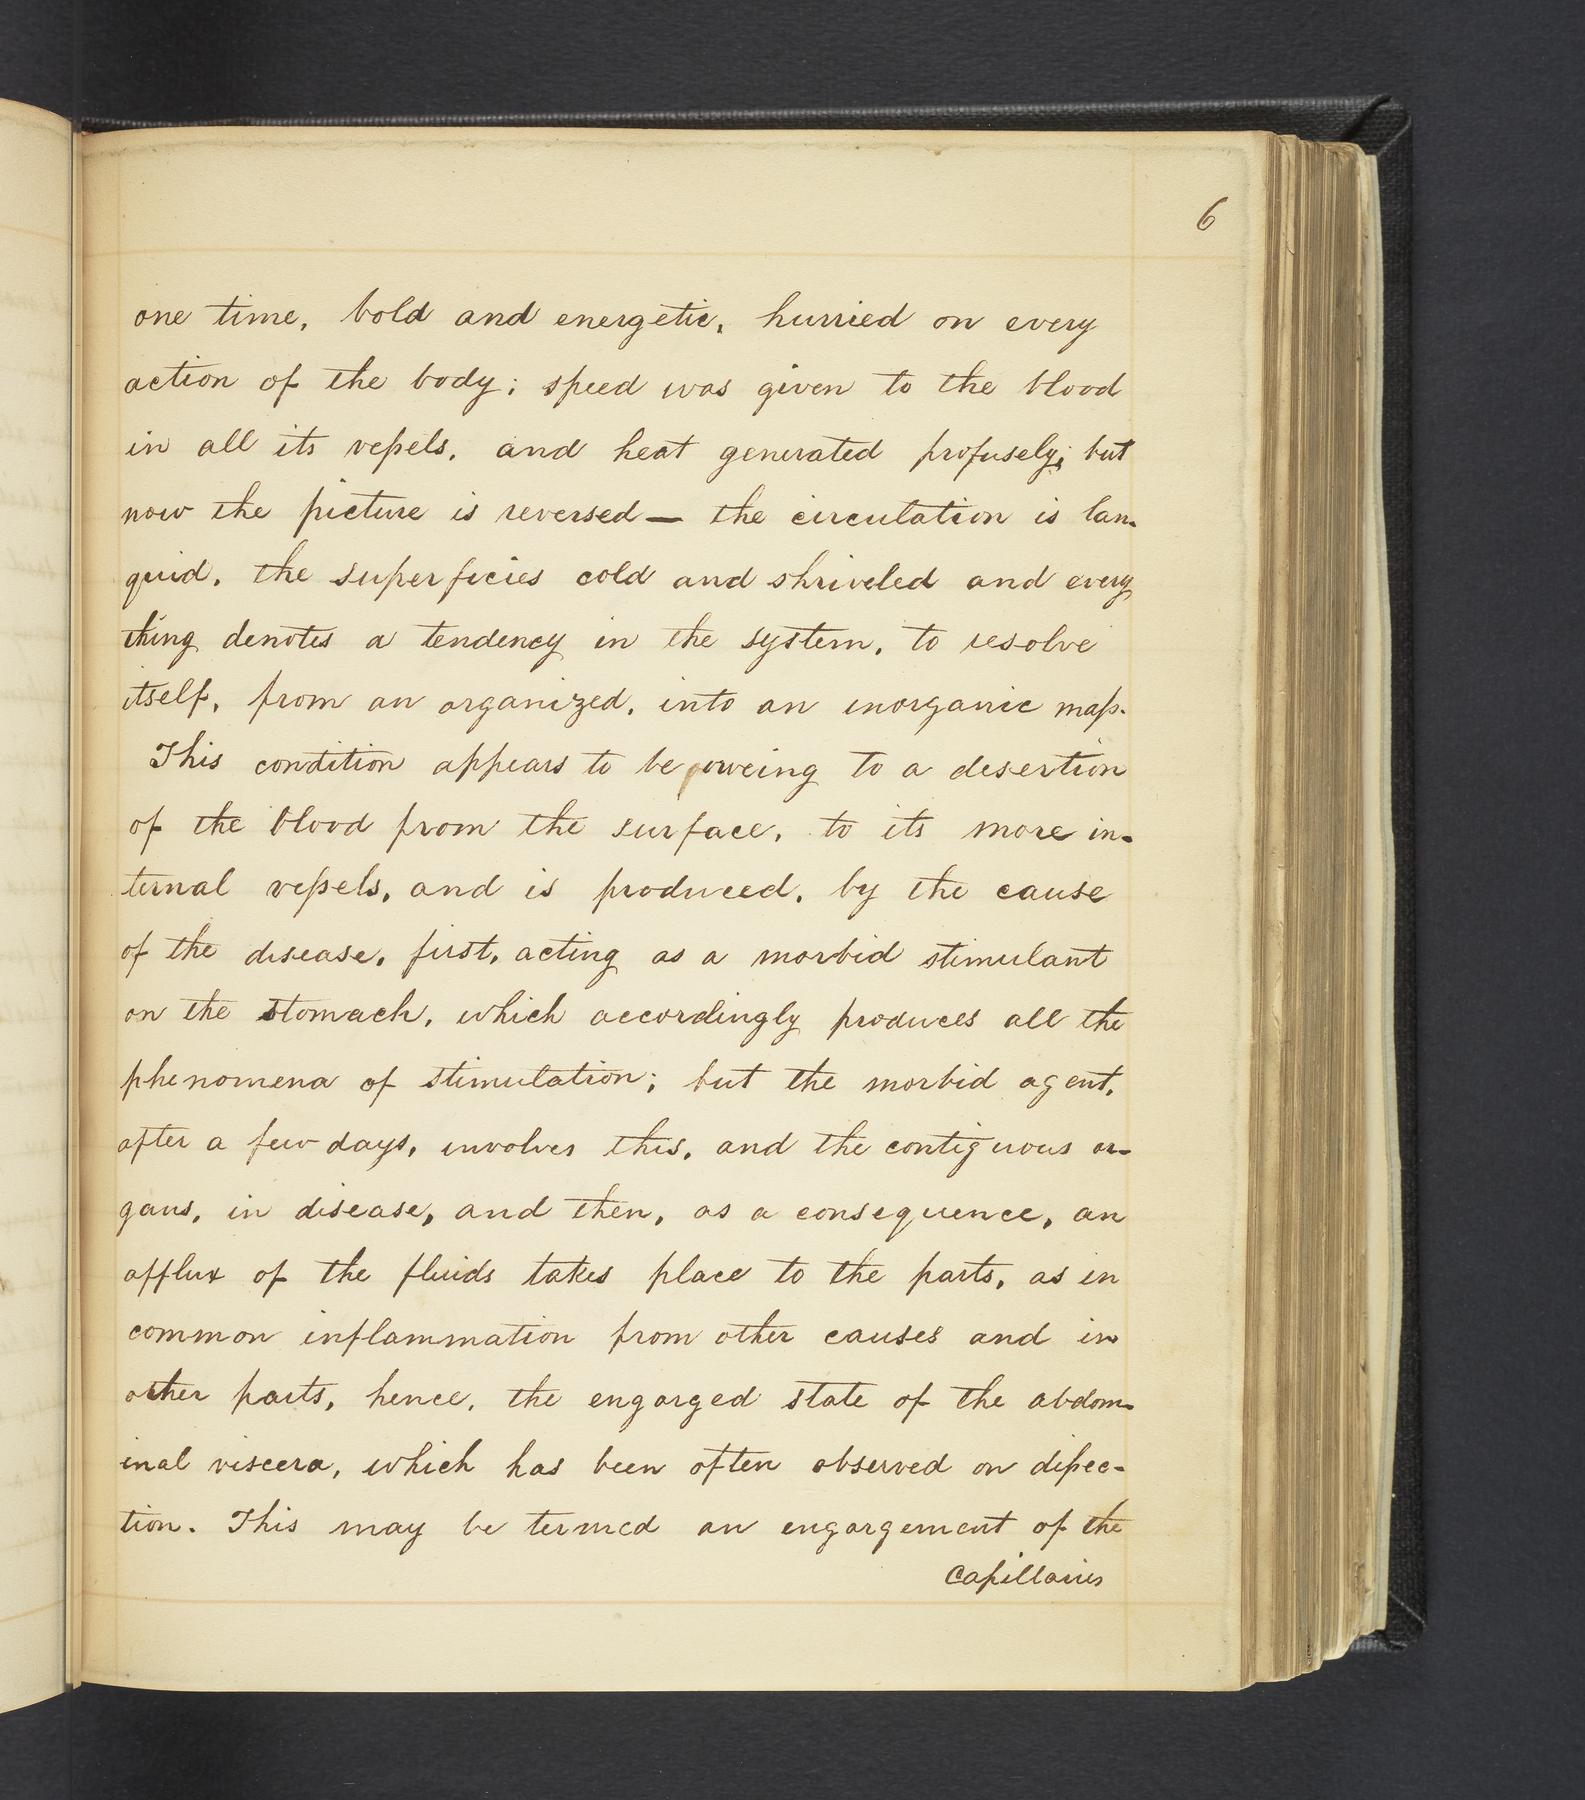 6
one time, bold and energetic, hurried on every
action of the body; speed was given to the blood
in all its vessels, and heat generated profusely; but
now the picture is reversed — the circulation is lan-
guid, the superficies cold and shriveled and every
thing denotes a tendency in the system, to resolve
itself, from an organized, into an inorganic mass.
This condition appears to be oweing to a desertion
of the blood from the surface, to its more in-
ternal vessels, and is produced, by the cause
of the disease, first, acting as a morbid stimulant
on the stomach, which accordingly produces all the
phenomena of stimulation; but the morbid agent,
after a few days, involves this, and the contiguous or-
gans, in disease, and then, as a consequence, an
afflux of the fluids takes place to the parts, as in
common inflammation from other causes and in
other parts, hence, the engorged state of the abdom-
inal viscera, which has been often observed on dissec-
tion. This may be termed an engorgement of the
Capillaries